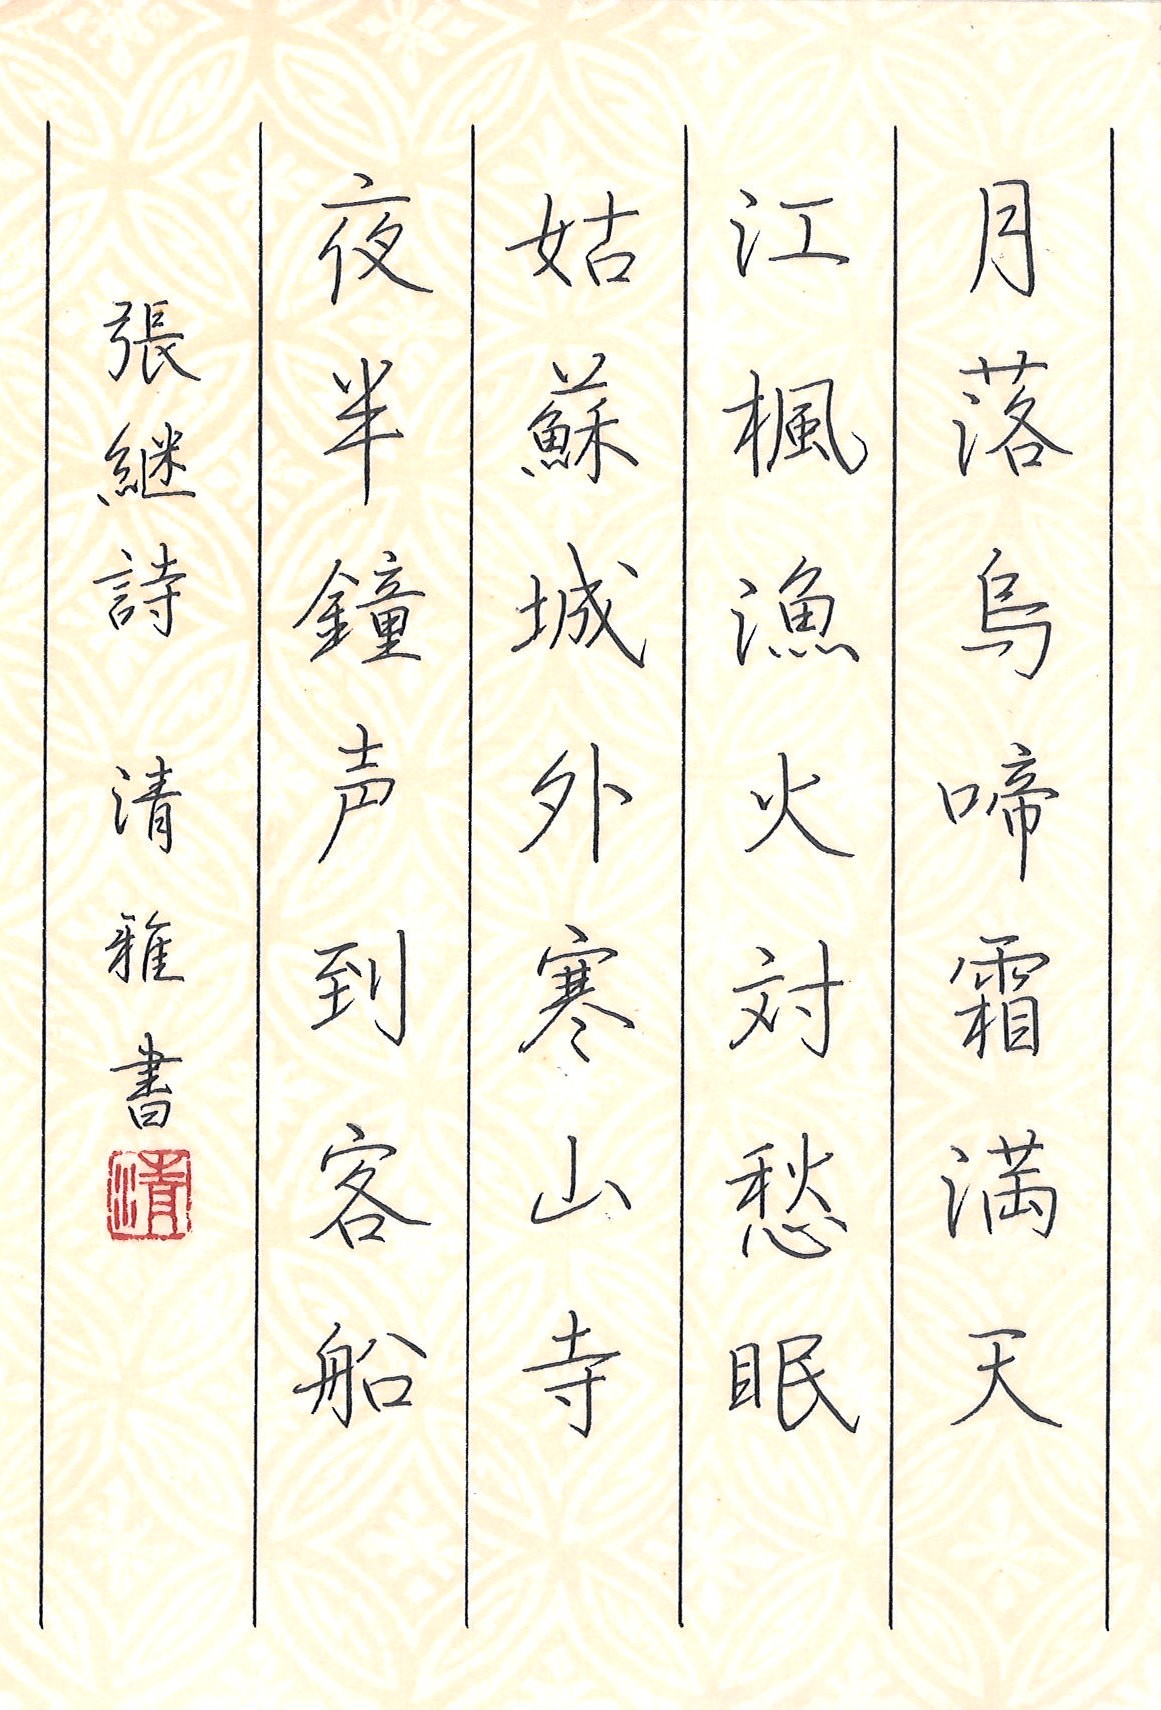 月落烏啼霜満天
江楓漁火対愁眠
姑蘇城外寒山寺
夜半鐘声到客船
張継詩 清雅書
清